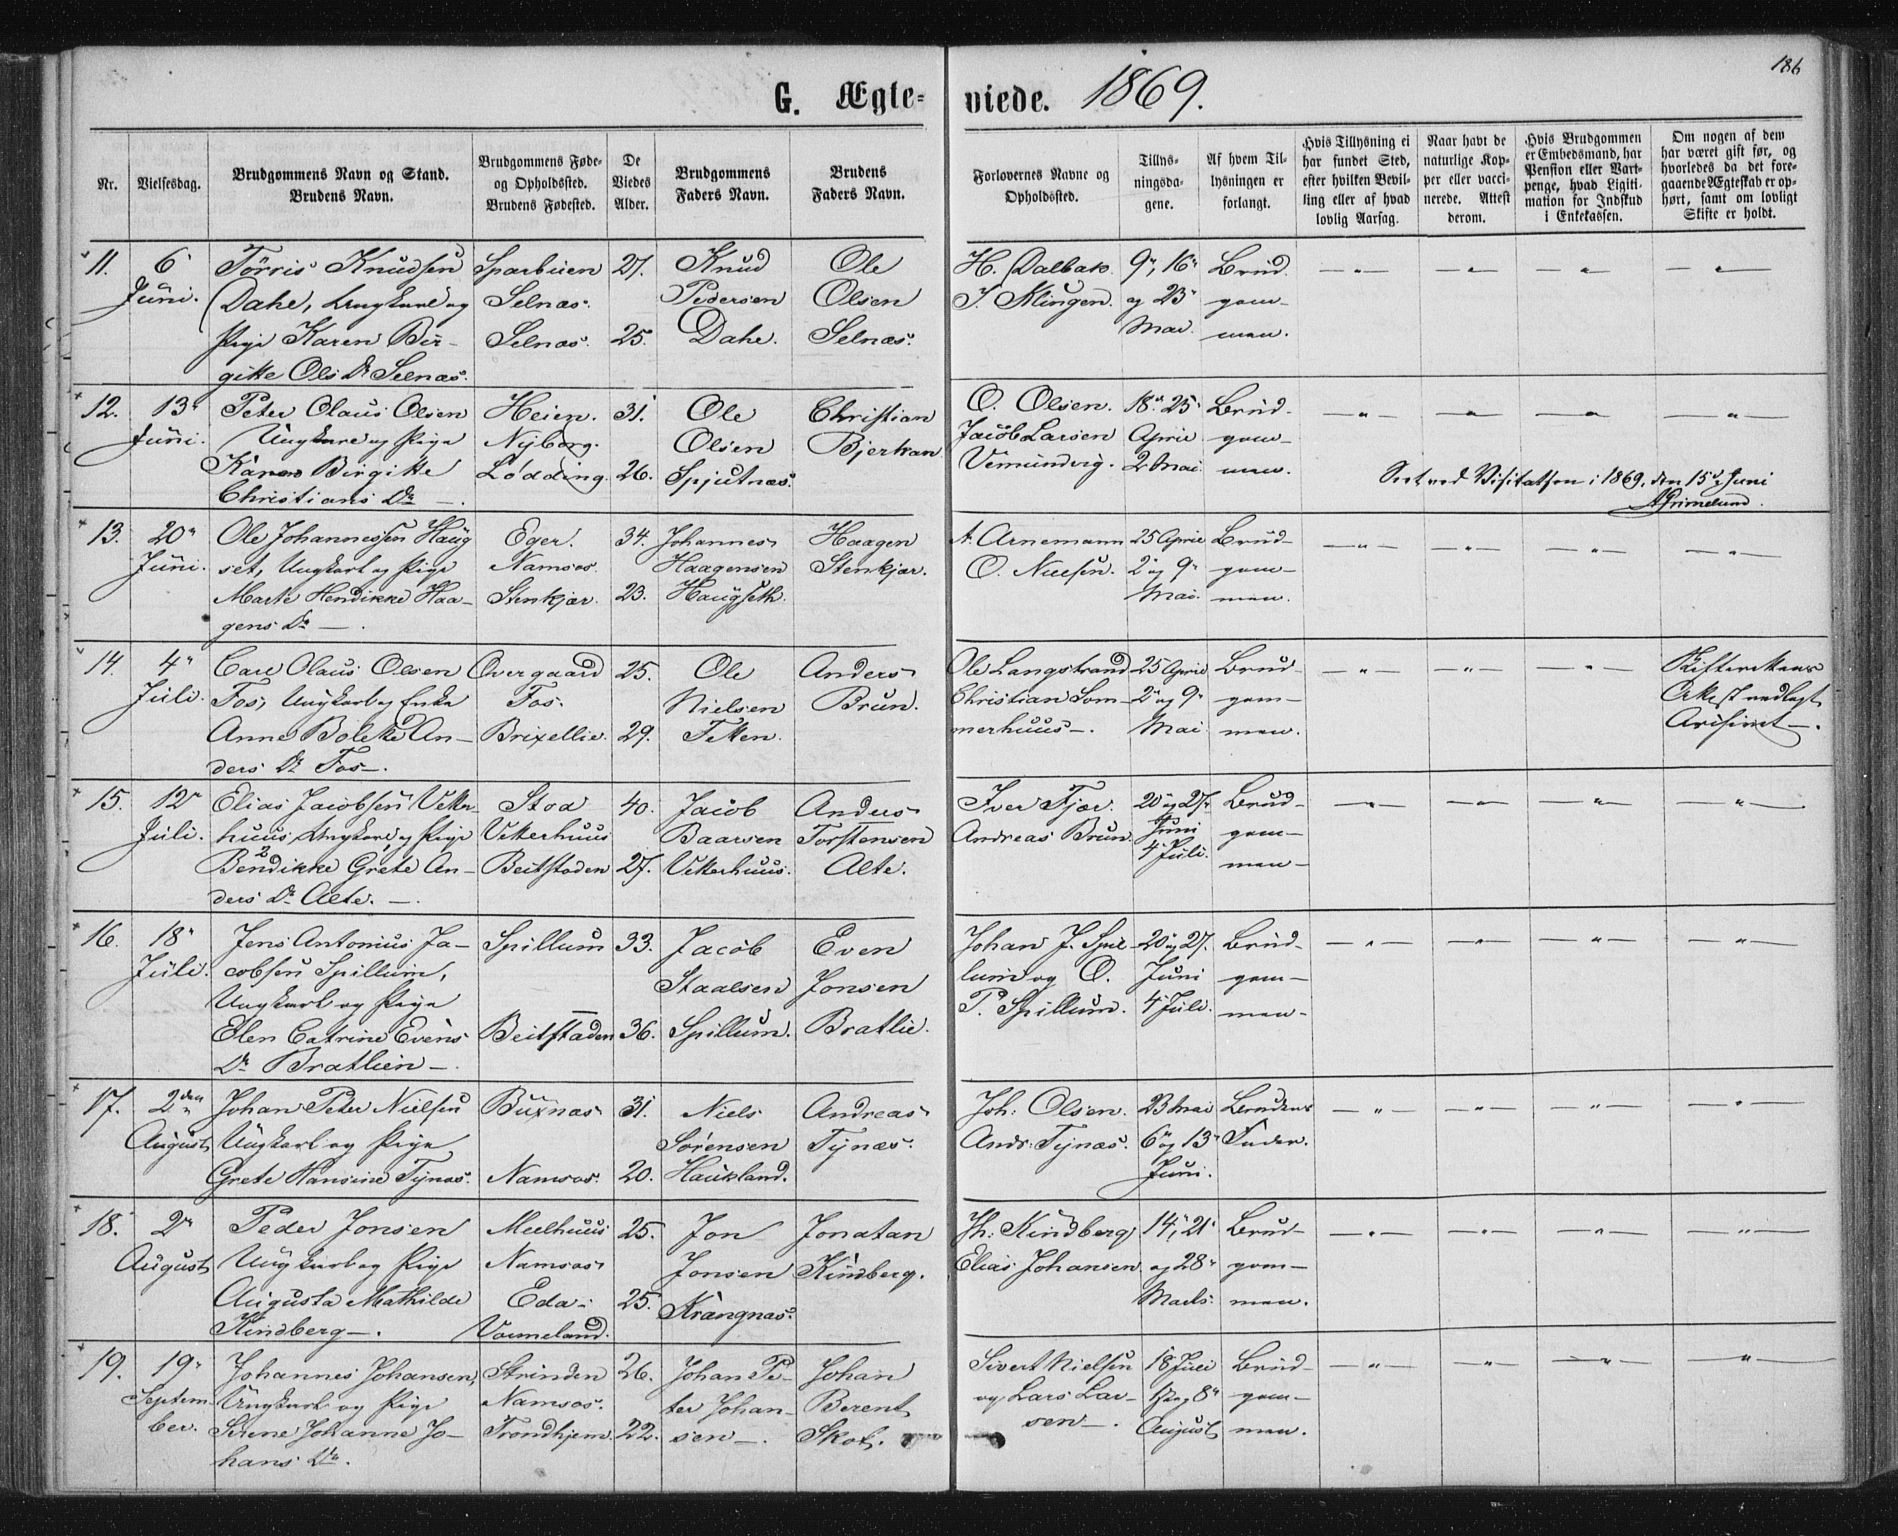 186
G. Ægte-
viede. 1869.
Nr.
Vielsesdag.
Brudgommens Navn og Stand.
Brudens Navn.
Brudgommens Føde-
og Opholdssted.
Brudens Fødested.
De
Viedes
Alder.
Brudgommens
Faders Navn.
Brudens
Faders Navn.
Forlovernes Navne og
Opholdssted.
Tillys-
ningsda-
gene.
Af hvem Til-
lysningen er
forlangt.
Hvis Tillysning ei
har fundet Sted,
efter hvilken Bevil-
ling eller af hvad
lovlig Aarsag.
Naar havt de
naturlige Kop-
per eller vacci-
nerede. Attest
derom.
Hvis Brudgommen
er Embedsmand, har
Pension eller Vart-
penge, hvad Ligiti-
mation for Indskud
i Enkekassen.
Om nogen af dem
har været gift før, og
hvorledes da det fore-
gaaende Ægteskab er op-
hørt, samt om lovligt
Skifte er holdt.
11.
6
Juni.
Tørris Knudsen
Dahe, Ungkarl og
Pige Karen Bir-
gitte Ols Dr Selnæs.
Sparbuen
Selnæs.
Selnæs.
27.
25.
Knud
Pedersen
Dahe.
Ole
Olsen
Selnæs.
H. Dalbak
J. Klingen.
9", 16"
og 23"
Mai.
Brud-
gom-
men.
12.
13"
Juni.
Peter Olaus Olsen
Ungkarl og Pige
Karen Birgitte
Christians Dr —.
Heien.
Nyborg.
Lødding.
31.
26.
Ole
Olsen
Spjutnæs.
Christian
Bjerkan
O. Olsen.
Jacob Larsen
Vemundvig.
18" 25"
April
2 Mai
Brud-
gom-
men.
Seet ved Visitatsen i 1869, den 15de Juni
AGrimelund.
13.
20"
Juni.
Ole Johannessen Haug
set, Ungkarl og Pige
Marte Hendikke Haa-
gens Dr —.
Eger.
Namsos.
Stenkjær.
34.
23.
Johannes
Haagensen
Haugseth.
Haagen
Stenkjær.
A. Arnemann
O. Nielsen.
25 April
2" og 9"
Mai.
Brud-
gom-
men.
14.
4"
Juli.
Carl Olaus Olsen
Fos, Ungkarl og Enke
Anne Bolette An-
ders Dr Fos —.
Overgaard
Fos.
Brixellie.
25.
29.
Ole
Nielsen
Tetten.
Anders
Brun.
Ole Langstrand
Christian Som-
merhuus —.
25 April
2" og 9"
Mai
Brud-
gom-
men.
Skifterettens
Attest vedlagt
Archivet —.
15.
12"
Juli.
Elias Jacobsen Vetter
huus, Ungkarl, og Pige
Bendikke Grete An-
ders Dr Alte. —.
Stod
Vetterhuus
Beitstaden
40.
27.
Jacob
Baarsen
Vetterhuus.
Anders
Torstensen
Alte.
Iver Fjær.
Andreas Brun.
20 og 27"
Juni
4 Juli.
Brud-
gom-
men —
16.
18"
Juli.
Jens Antonius Ja-
cobsen Spillum,
Ungkarl og Pige
Elen Catrine Evens
Dr Bratlien —.
Spillum
Beitstaden
33.
36.
Jacob
Staalsen
Spillum.
Even
Jonsen
Bratlie.
Johan J. Spil-
lum og O.
P. Spillum.
20 og 27.
Juni
4 Juli.
Brud-
gom-
men —
17.
2den
August
Johan Peter Nielsen
Ungkarl og Pige
Grete Hansine Tynæs.
Buxnæs
Namsos.
31.
20.
Niels
Sørensen
Haukland.
Andreas
Tynæs.
Joh: Olsen.
Andr: Tynæs.
23 Mai
6" og 13"
Juni.
Brudens
Fader.
18.
2"
August
Peder Jonsen
Ungkarl og Pige
Augusta Mathilde
Kindberg —.
Melhuus
Namsos
Eda
Vermeland.
25.
25.
Jon
Jonsen
Krangnæs.
Jonatan
Kindberg.
Jh: Kindberg
Elias Johansen
14", 21"
og 28"
Marts.
Brud-
gom-
men.
19.
19"
Septem-
ber.
Johannes Johansen,
Ungkarl og Pige
Serene Johanne Jo-
hans Dr.
Strinden
Namsos.
Trondhjem.
26.
22.
Johan Pe-
ter Johan-
sen —.
Johan
Berent
Skot.
Sivert Nielsen
og Lars Lar-
sen —.
18 Juli
1ste og 8"
August
Brud-
gom-
men.